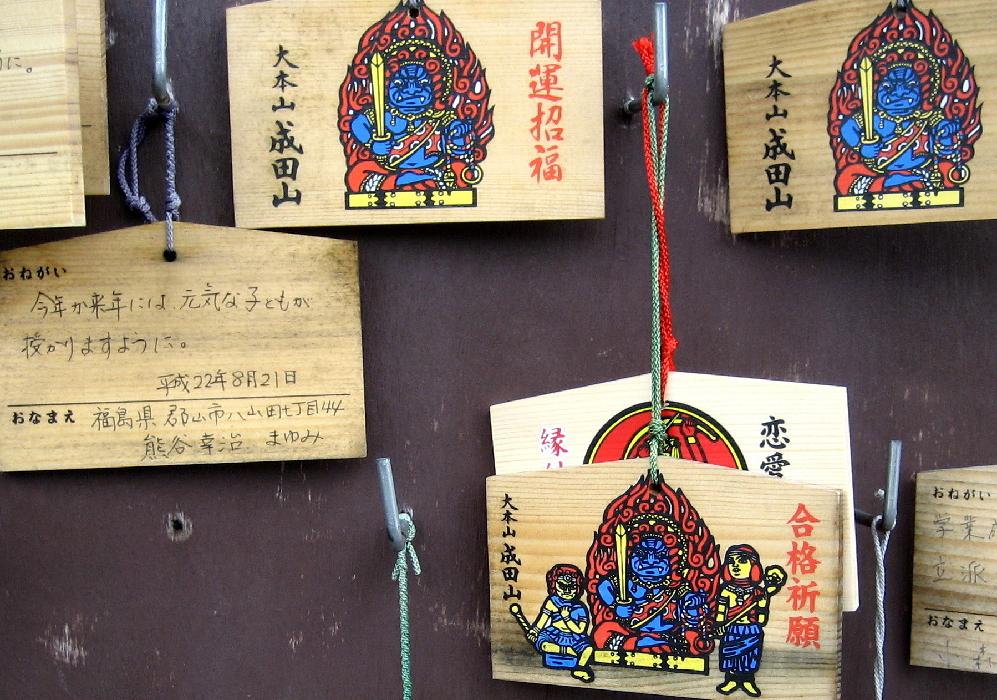 に。
大本山 成田山
開運招福
大本山 成田山
おねがい
今年か来年には、元気な子どもが
授かりますように。
平成22年8月21日
おなまえ 福島県 郡山市八山田七丁目44
熊谷幸治 まゆみ
縁
恋愛
大本山 成田山
合格祈願
おねがい
学業
立派
おなまえ
森